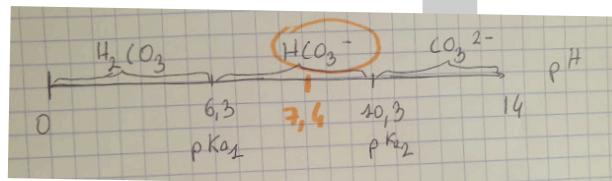 H₂CO₃ HCO₃⁻ CO₃²⁻
pH
0 6,3 7,4 10,3 14
pKa₁ pKa₂